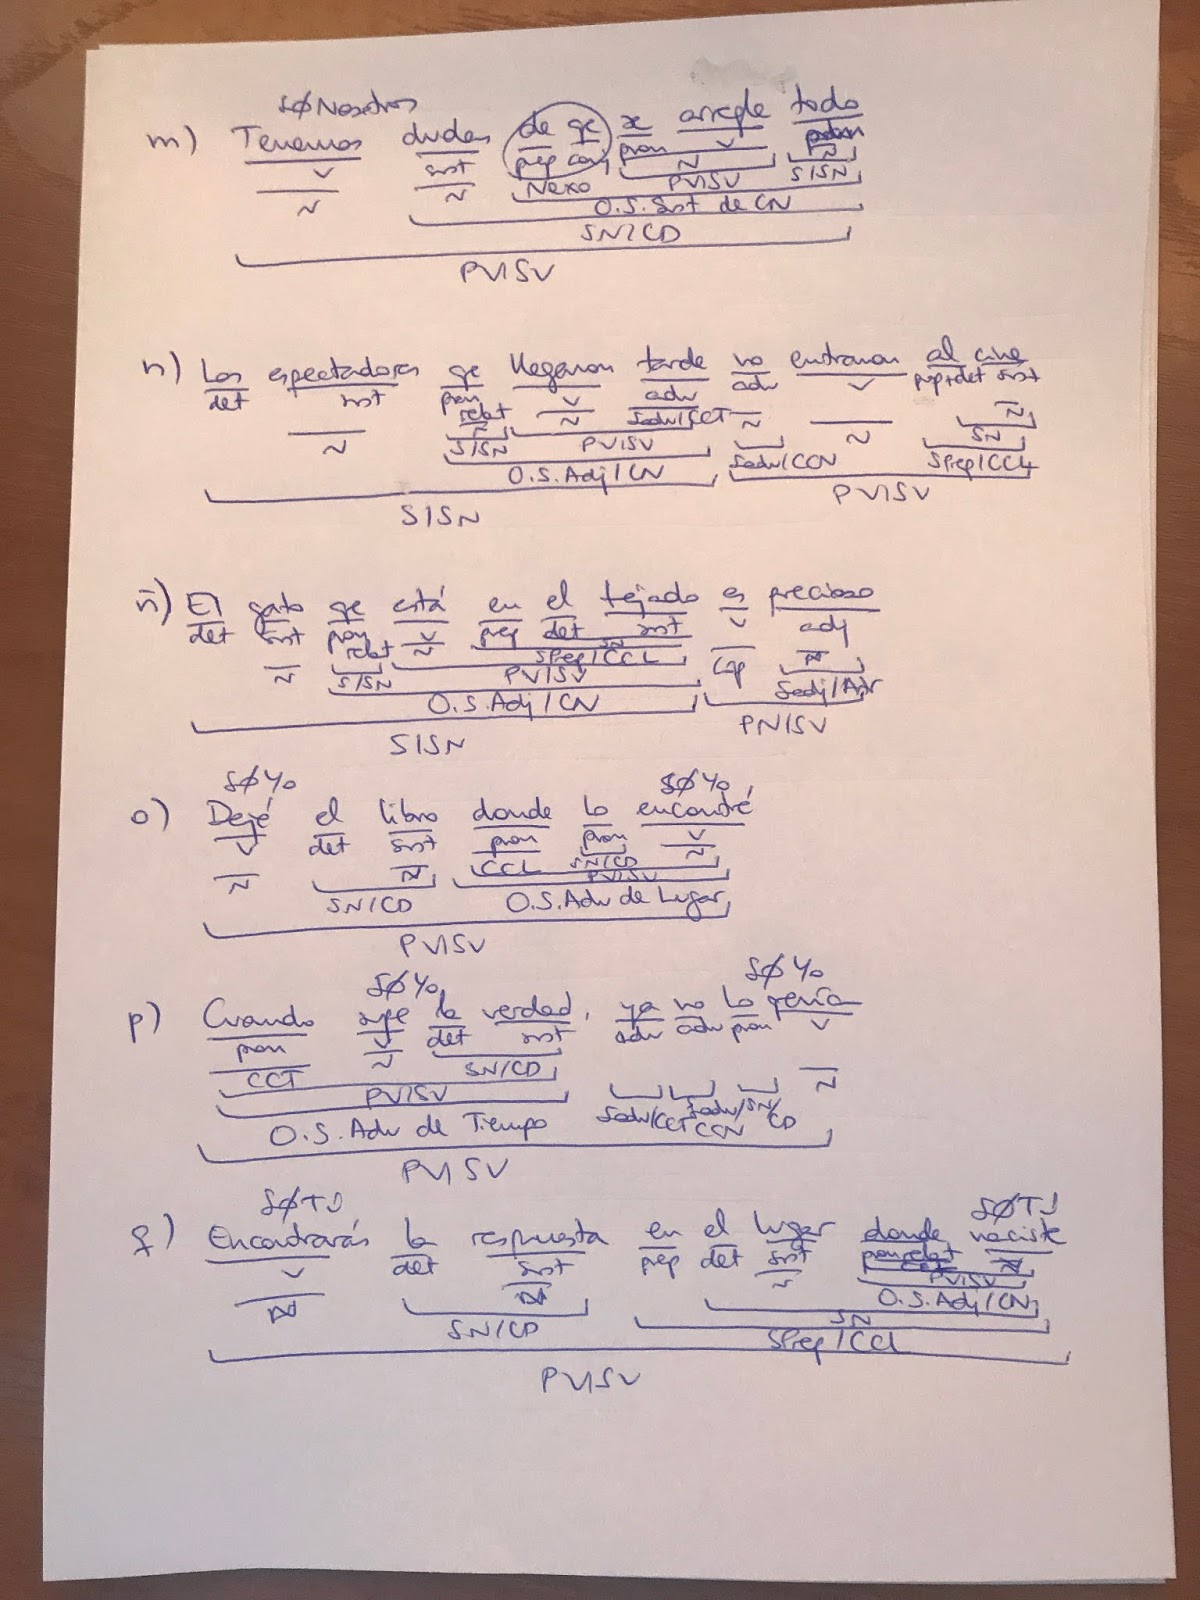 SØ Nosotros
m) Tenemos dudas de qe se arregle todo
V sust prep conj pron V pron
N N Nexo N N
PV/SV S/SN
O.S. Sust de CN
SN/CD
PV/SV
n) Los espectadores qe llegaron tarde no entraron al cine
det sust pron relat V adv adv V prep+det sust
N N N Sadv/CCT N N N
S/SN PV/SV Sadv/CCN SN
O.S. Adj/CN SPrep/CCL
S/SN PV/SV
ñ) El gato qe está en el tejado es precioso
det sust pron relat V prep det sust V adj
N N SN Cop N
S/SN SPrep/CCL Sadj/Atr
PV/SV
O.S. Adj/CN PN/SV
S/SN
SØ Yo SØ Yo
o) Dejé el libro donde lo encontré
V det sust pron pron V
N N CCL SN/CD N
PV/SV
SN/CD O.S. Adv de Lugar
PV/SV
SØ Yo SØ Yo
p) Cuando supe la verdad, ya no lo qería
pron V det sust adv adv pron V
CCT N SN/CD N
PV/SV Sadv/CCT Sadv/CCN SN/CD
O.S. Adv de Tiempo
PV/SV
SØ TÚ SØ TÚ
q) Encontrarás la respuesta en el lugar donde naciste
V det sust prep det sust pron relat
N N N N
PV/SV
O.S. Adj/CN
SN/CD SN
SPrep/CCL
PV/SV